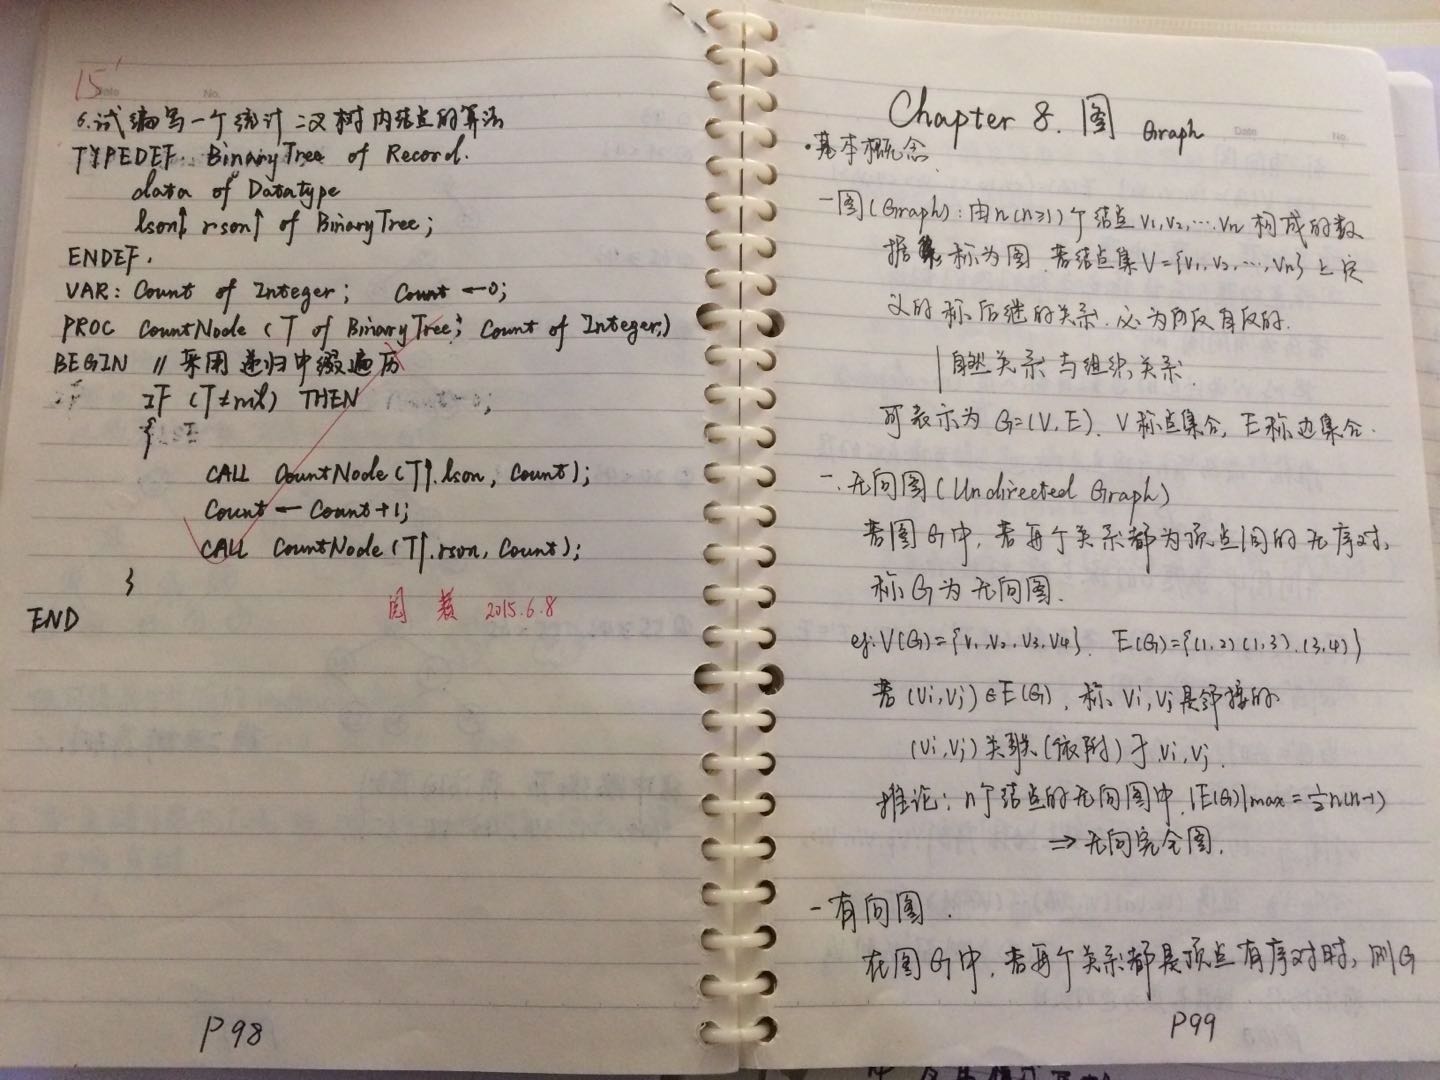 15'
Date No.
6.试编写一个统计二叉树内结点的算法
TYPEDEF: BinaryTree of Record.
data of Datatype
lson↑, rson↑ of BinaryTree;
ENDEF.
VAR: Count of Integer; Count ←0;
PROC CountNode (T of BinaryTree; Count of Integer;)
BEGIN // 采用递归中缀遍历
IF (T≠nil) THEN
{
CALL CountNode (T↑.lson, Count);
Count ← Count+1;
CALL CountNode (T↑.rson, Count);
}
END
阅 2015.6.8
P98
Chapter 8. 图 Graph
Date No.
·基本概念
-图(Graph):由n(n≥1)个结点V1,V2,…Vn构成的数
据 称为图.若结点集V={V1,V2,…,Vn}上定
义的称后继的关系.必为 反自反的.
|自然关系与组织关系.
可表示为 G=(V,E). V称点集合, E称边集合.
-.无向图(Undirected Graph)
若图G中,若每个关系都为顶点间的无序对,
称G为无向图.
eg:V(G)={V1,V2,V3,V4}. E(G)={(1,2)(1,3).(3,4)}
若(Vi,Vj)∈E(G),称Vi,Vj是邻接的
(Vi,Vj)关联(依附)于Vi,Vj.
推论:n个结点的无向图中,|E(G)|max=½n(n-1)
⇒无向完全图.
-有向图.
在图G中,若每个关系都是顶点有序对时,则G
P99